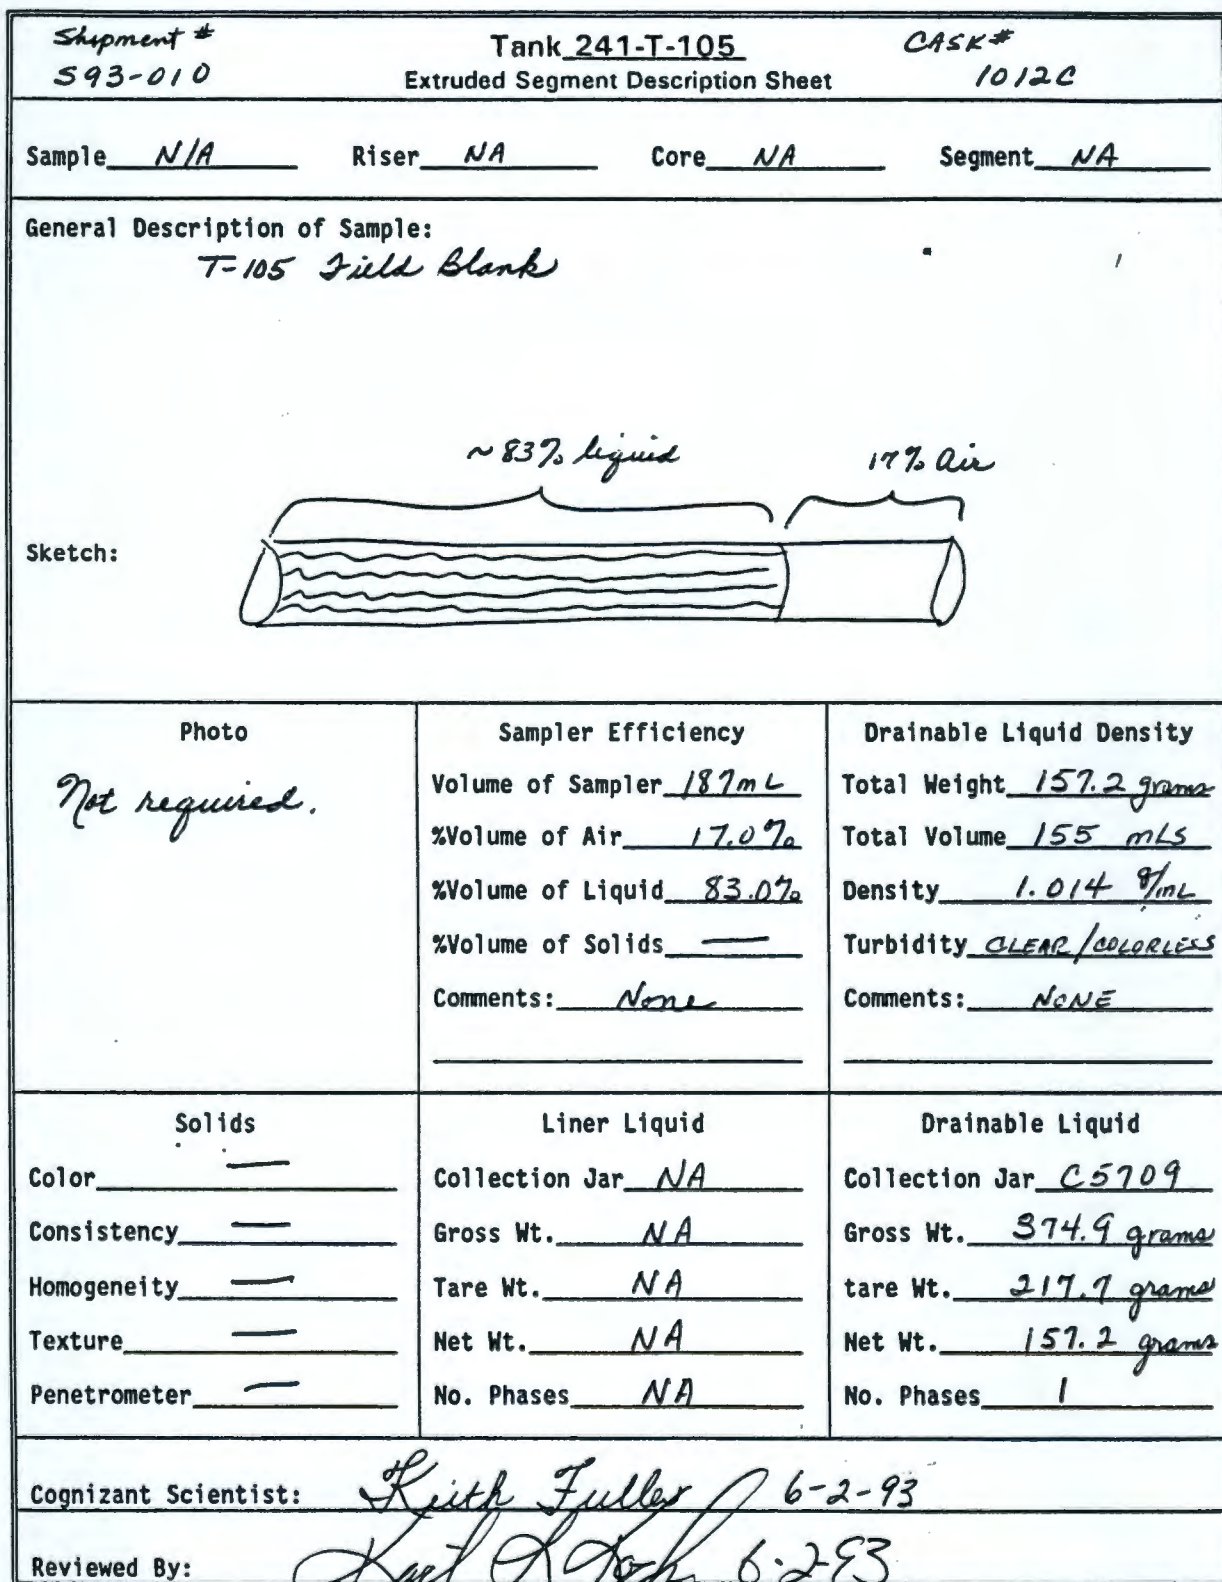 Shipment # Tank 241-T-105 CASK#
S93-010 Extruded Segment Description Sheet 1012C
Sample N/A Riser NA Core NA Segment NA
General Description of Sample:
T-105 Field Blank
~83% liquid 17% air
Sketch:
Photo
Not required.
Sampler Efficiency
Volume of Sampler 187mL
%Volume of Air 17.0%
%Volume of Liquid 83.0%
%Volume of Solids —
Comments: None
Drainable Liquid Density
Total Weight 157.2 grams
Total Volume 155 mLs
Density 1.014 g/mL
Turbidity CLEAR/COLORLESS
Comments: NONE
Solids
Color —
Consistency —
Homogeneity —
Texture —
Penetrometer —
Liner Liquid
Collection Jar NA
Gross Wt. NA
Tare Wt. NA
Net Wt. NA
No. Phases NA
Drainable Liquid
Collection Jar C5709
Gross Wt. 374.9 grams
tare Wt. 217.7 grams
Net Wt. 157.2 grams
No. Phases 1
Cognizant Scientist: Keith Fuller 6-2-93
Reviewed By: 6-2-93